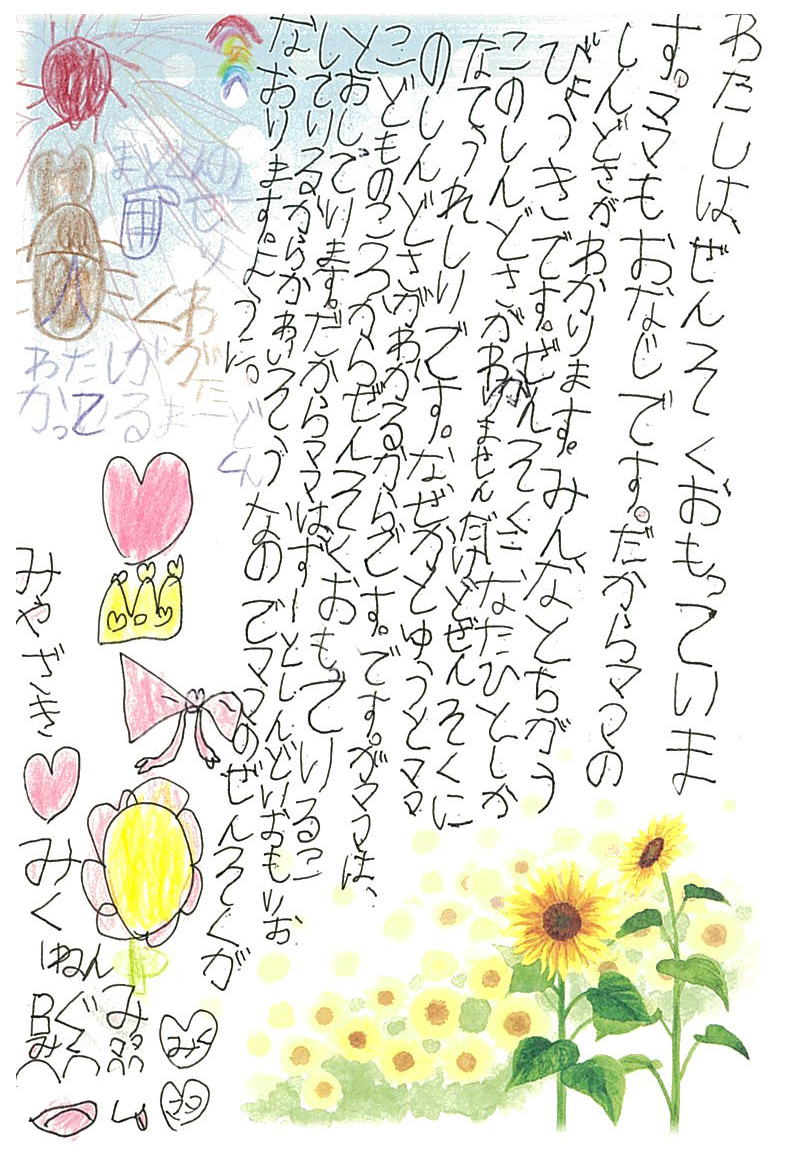 わたしは、ぜんそくおもっていま
す。ママもおなじです。だからママの
しんどさがわかります。みんなとちがう
びょうきです。ぜんそくになたひとしか
このしんどさがわかりませんだけどぜんそくに
なてうれしいです。なぜかとゆうとママ
のしんどさがわかるからです。です。がママは、
こどものころからぜんそくおもっているこ
とおしています。だからママはずーとしんどいおもいお
しているからかわいそうなのでママのぜんそくが
なおりますように。
くわがた
わたしが
かってる
まーどん
みやざき
みく